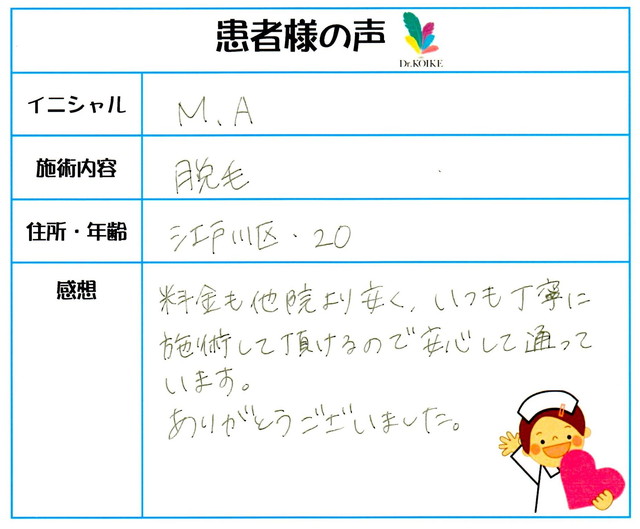 患者様の声
Dr.KOIKE
イニシャル
M、A
施術内容
脱毛
住所・年齢
江戸川区・20
感想
料金も他院より安く、いつも丁寧に
施術して頂けるので安心して通って
います。
ありがとうございました。